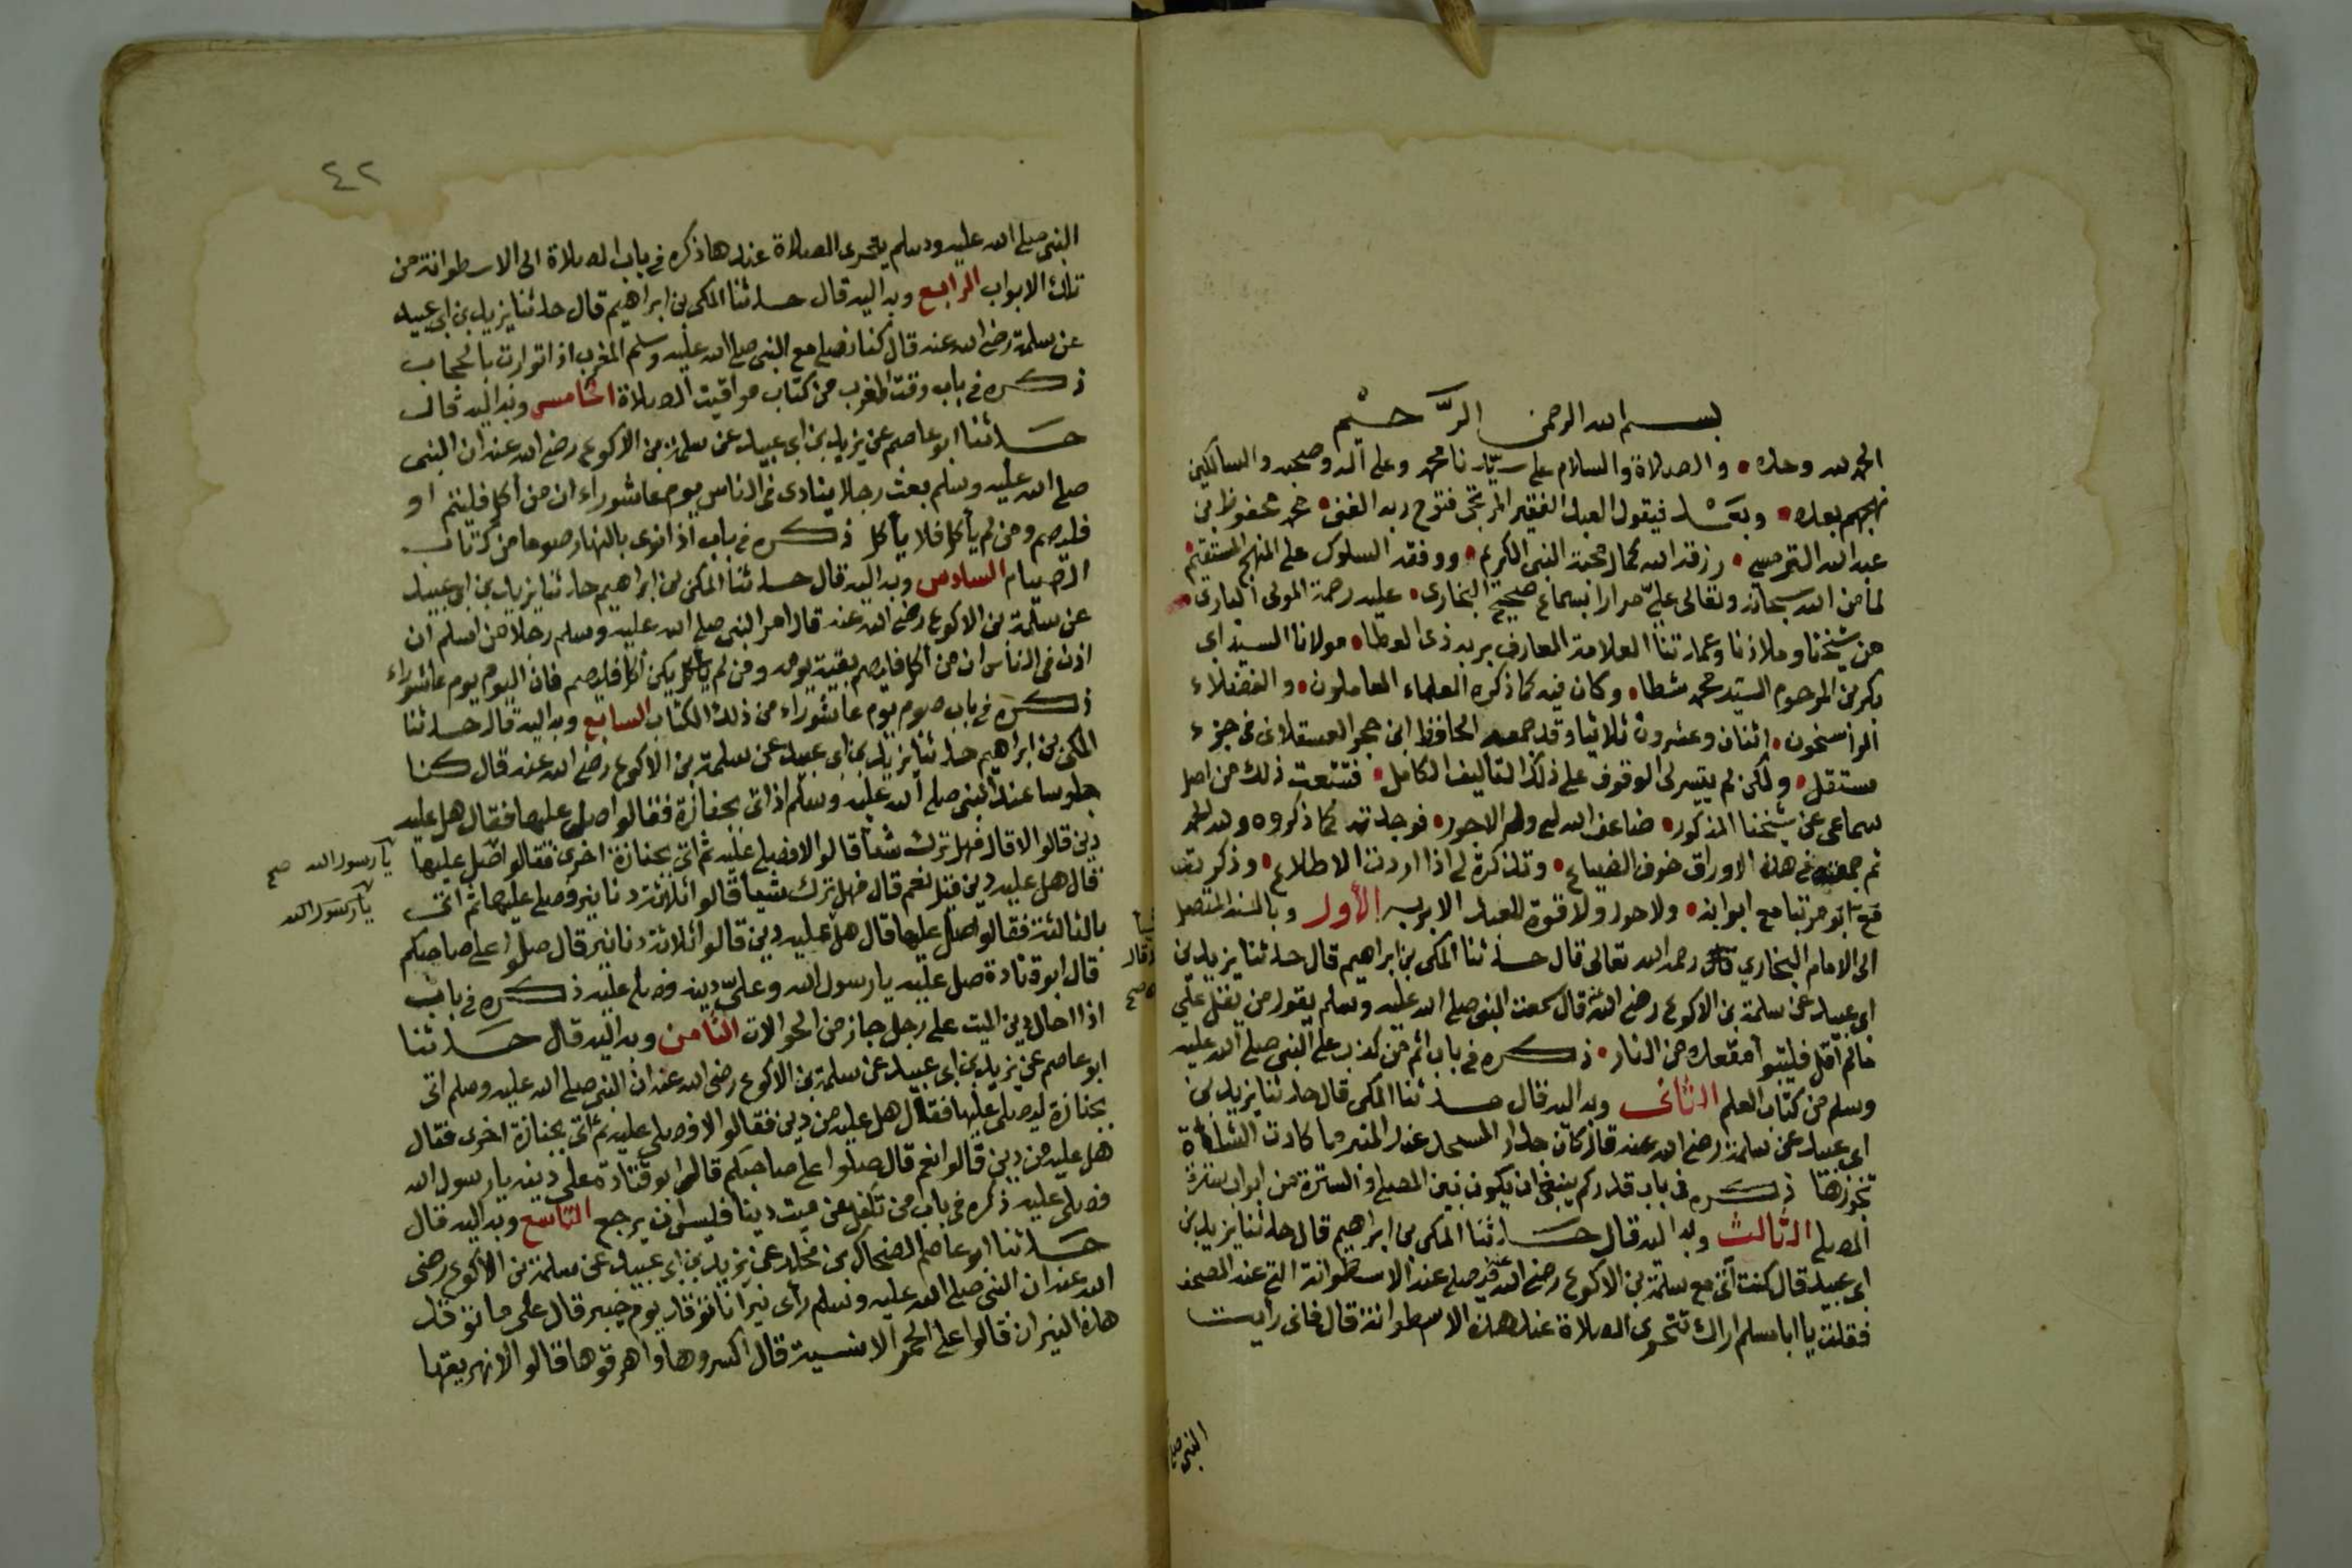 بسم الله الرحمن الرَّحيْم
الحمد لله وحده • والصلاة والسلام على سيّدنا محمد وعلى آله وصحبه والسالكين
نهجهم بعده • وبَعْد فيقول العبد الفقير المرتجى فتوح ربه الغنى • محمد محفوظ بن
عبد الله الترمسي • رزقه الله كمال محبة النبى الكريم • ووفقه السلوك على المنهج المستقيم •
لما من الله سبحانه وتعالى علىّ مرارا بسماع صحيح البخارى • عليه رحمة المولى البارى •
من شيخنا وملاذنا وعمدتنا العلامة المعارف بربه ذى العطا • مولانا السيد ابى
بكر بن المرحوم السيد محمد شطا • وكان فيه كما ذكره العلماء العاملون • والفضلاء
الراسخون • اثنان وعشرون ثلاثيا وقد جمعه الحافظ ابن حجر العسقلانى فى جزء
مستقل • ولكن لم يتيسر لى الوقوف على ذلك التأليف الكامل • فتتبعت ذلك من اصل
سماعى عن شيخنا المذكور • ضاعف الله لى ولهم الاجور • فوجدته كما ذكروه ولله الحمد
ثم جمعته فى هذه الاوراق خوف الضياع • وتذكرة لى اذا اردت الاطلاع • وذكرته
مع ابوابه • ولا حول ولا قوة للعبد الا بربه الأول وبالسند المتصل
الى الامام البخاري رحمه الله تعالى قال حدثنا المكى بن ابراهيم قال حدثنا يزيد بن
ابى عبيد عن سلمة بن الاكوع رضى الله عنه قال سمعت النبى صلى الله عليه وسلم يقول من يقل علي
ما لم أقل فليتبوأ مقعده من النار • ذكره فى باب اثم من كذب على النبى صلى الله عليه
وسلم من كتاب العلم الثانى وبه اليه قال حدثنا المكى قال حدثنا يزيد بن
ابى عبيد عن سلمة رضى الله عنه قال كان جدار المسجد عند المنبر ما كادت الشاة
تجوزها ذكره فى باب قدر كم ينبغى ان يكون بين المصلى والسترة من ابواب سترة
المصلى الثالث وبه اليه قال حدثنا المكى بن ابراهيم قال حدثنا يزيد بن
ابى عبيد قال كنت آتى مع سلمة بن الاكوع رضى الله عنه فيصلى عند الاسطوانة التى عند المصحف
فقلت يا ابا مسلم اراك تتحرى الصلاة عند هذه الاسطوانة قال فانى رايت
النبى صلى
٤٢
النبى صلى الله عليه وسلم يتحرى الصلاة عندها ذكره فى باب الصلاة الى الاسطوانة من
تلك الابواب الرابع وبه اليه قال حدثنا المكى بن ابراهيم قال حدثنا يزيد بن ابى عبيد
عن سلمة رضى الله عنه قال كنا نصلى مع النبى صلى الله عليه وسلم المغرب اذا توارت بالحجاب
ذكره فى باب وقت المغرب من كتاب مواقيت الصلاة الخامس وبه اليه قال
حدثنا ابو عاصم عن يزيد بن ابى عبيد عن سلمة بن الاكوع رضى الله عنه ان النبى
صلى الله عليه وسلم بعث رجلا ينادى فى الناس يوم عاشوراء ان من أكل فليتم او
فليصم ومن لم يأكل فلا يأكل ذكره فى باب اذا نوى بالنهار صوما من كتاب
الصيام السادس وبه اليه قال حدثنا المكى بن ابراهيم حدثنا يزيد بن ابى عبيد
عن سلمة بن الاكوع رضى الله عنه قال امر النبى صلى الله عليه وسلم رجلا من اسلم ان
اذن فى الناس ان من أكل فليصم بقية يومه ومن لم يكن أكل فليصم فان اليوم يوم عاشوراء
ذكره فى باب صوم يوم عاشوراء من ذلك الكتاب السابع وبه اليه قال حدثنا
المكى بن ابراهيم حدثنا يزيد بن ابى عبيد عن سلمة بن الاكوع رضى الله عنه قال كنا
جلوسا عند النبى صلى الله عليه وسلم اذ اتى بجنازة فقالوا صل عليها فقال هل عليه
دين قالوا لا قال فهل ترك شيئا قالوا لا فصلى عليه ثم اتى بجنازة اخرى فقالوا صل عليها
يا رسول الله صح
قال هل عليه دين قيل نعم قال فهل ترك شيئا قالوا ثلاثة دنانير فصلى عليها ثم اتى
يا رسول الله
بالثالثة فقالوا صل عليها قال هل عليه دين قالوا ثلاثة دنانير قال صلوا على صاحبكم
قال ابو قتادة صل عليه يا رسول الله وعلىّ دينه فصلى عليه ذكره فى باب
اذا احال دين الميت على رجل جاز من الحوالات الثامن وبه اليه قال حدثنا
ابو عاصم عن يزيد بن ابى عبيد عن سلمة بن الاكوع رضى الله عنه ان النبى صلى الله عليه وسلم اتى
بجنازة ليصلى عليها فقال هل عليه من دين فقالوا لا فصلى عليه ثم اتى بجنازة اخرى فقال
هل عليه من دين قالوا نعم قال صلوا على صاحبكم قال ابو قتادة على دينه يا رسول الله
فصلى عليه ذكره فى باب من تكفل عن ميت دينا فليس له ان يرجع التاسع وبه اليه قال
حدثنا ابو عاصم الضحاك بن مخلد عن يزيد بن ابى عبيد عن سلمة بن الاكوع رضى
الله عنه ان النبى صلى الله عليه وسلم رأى نيرانا توقد يوم خيبر قال على ما توقد
هذه النيران قالوا على الحمر الانسية قال اكسروها واهرقوها قالوا ألا نهريقها